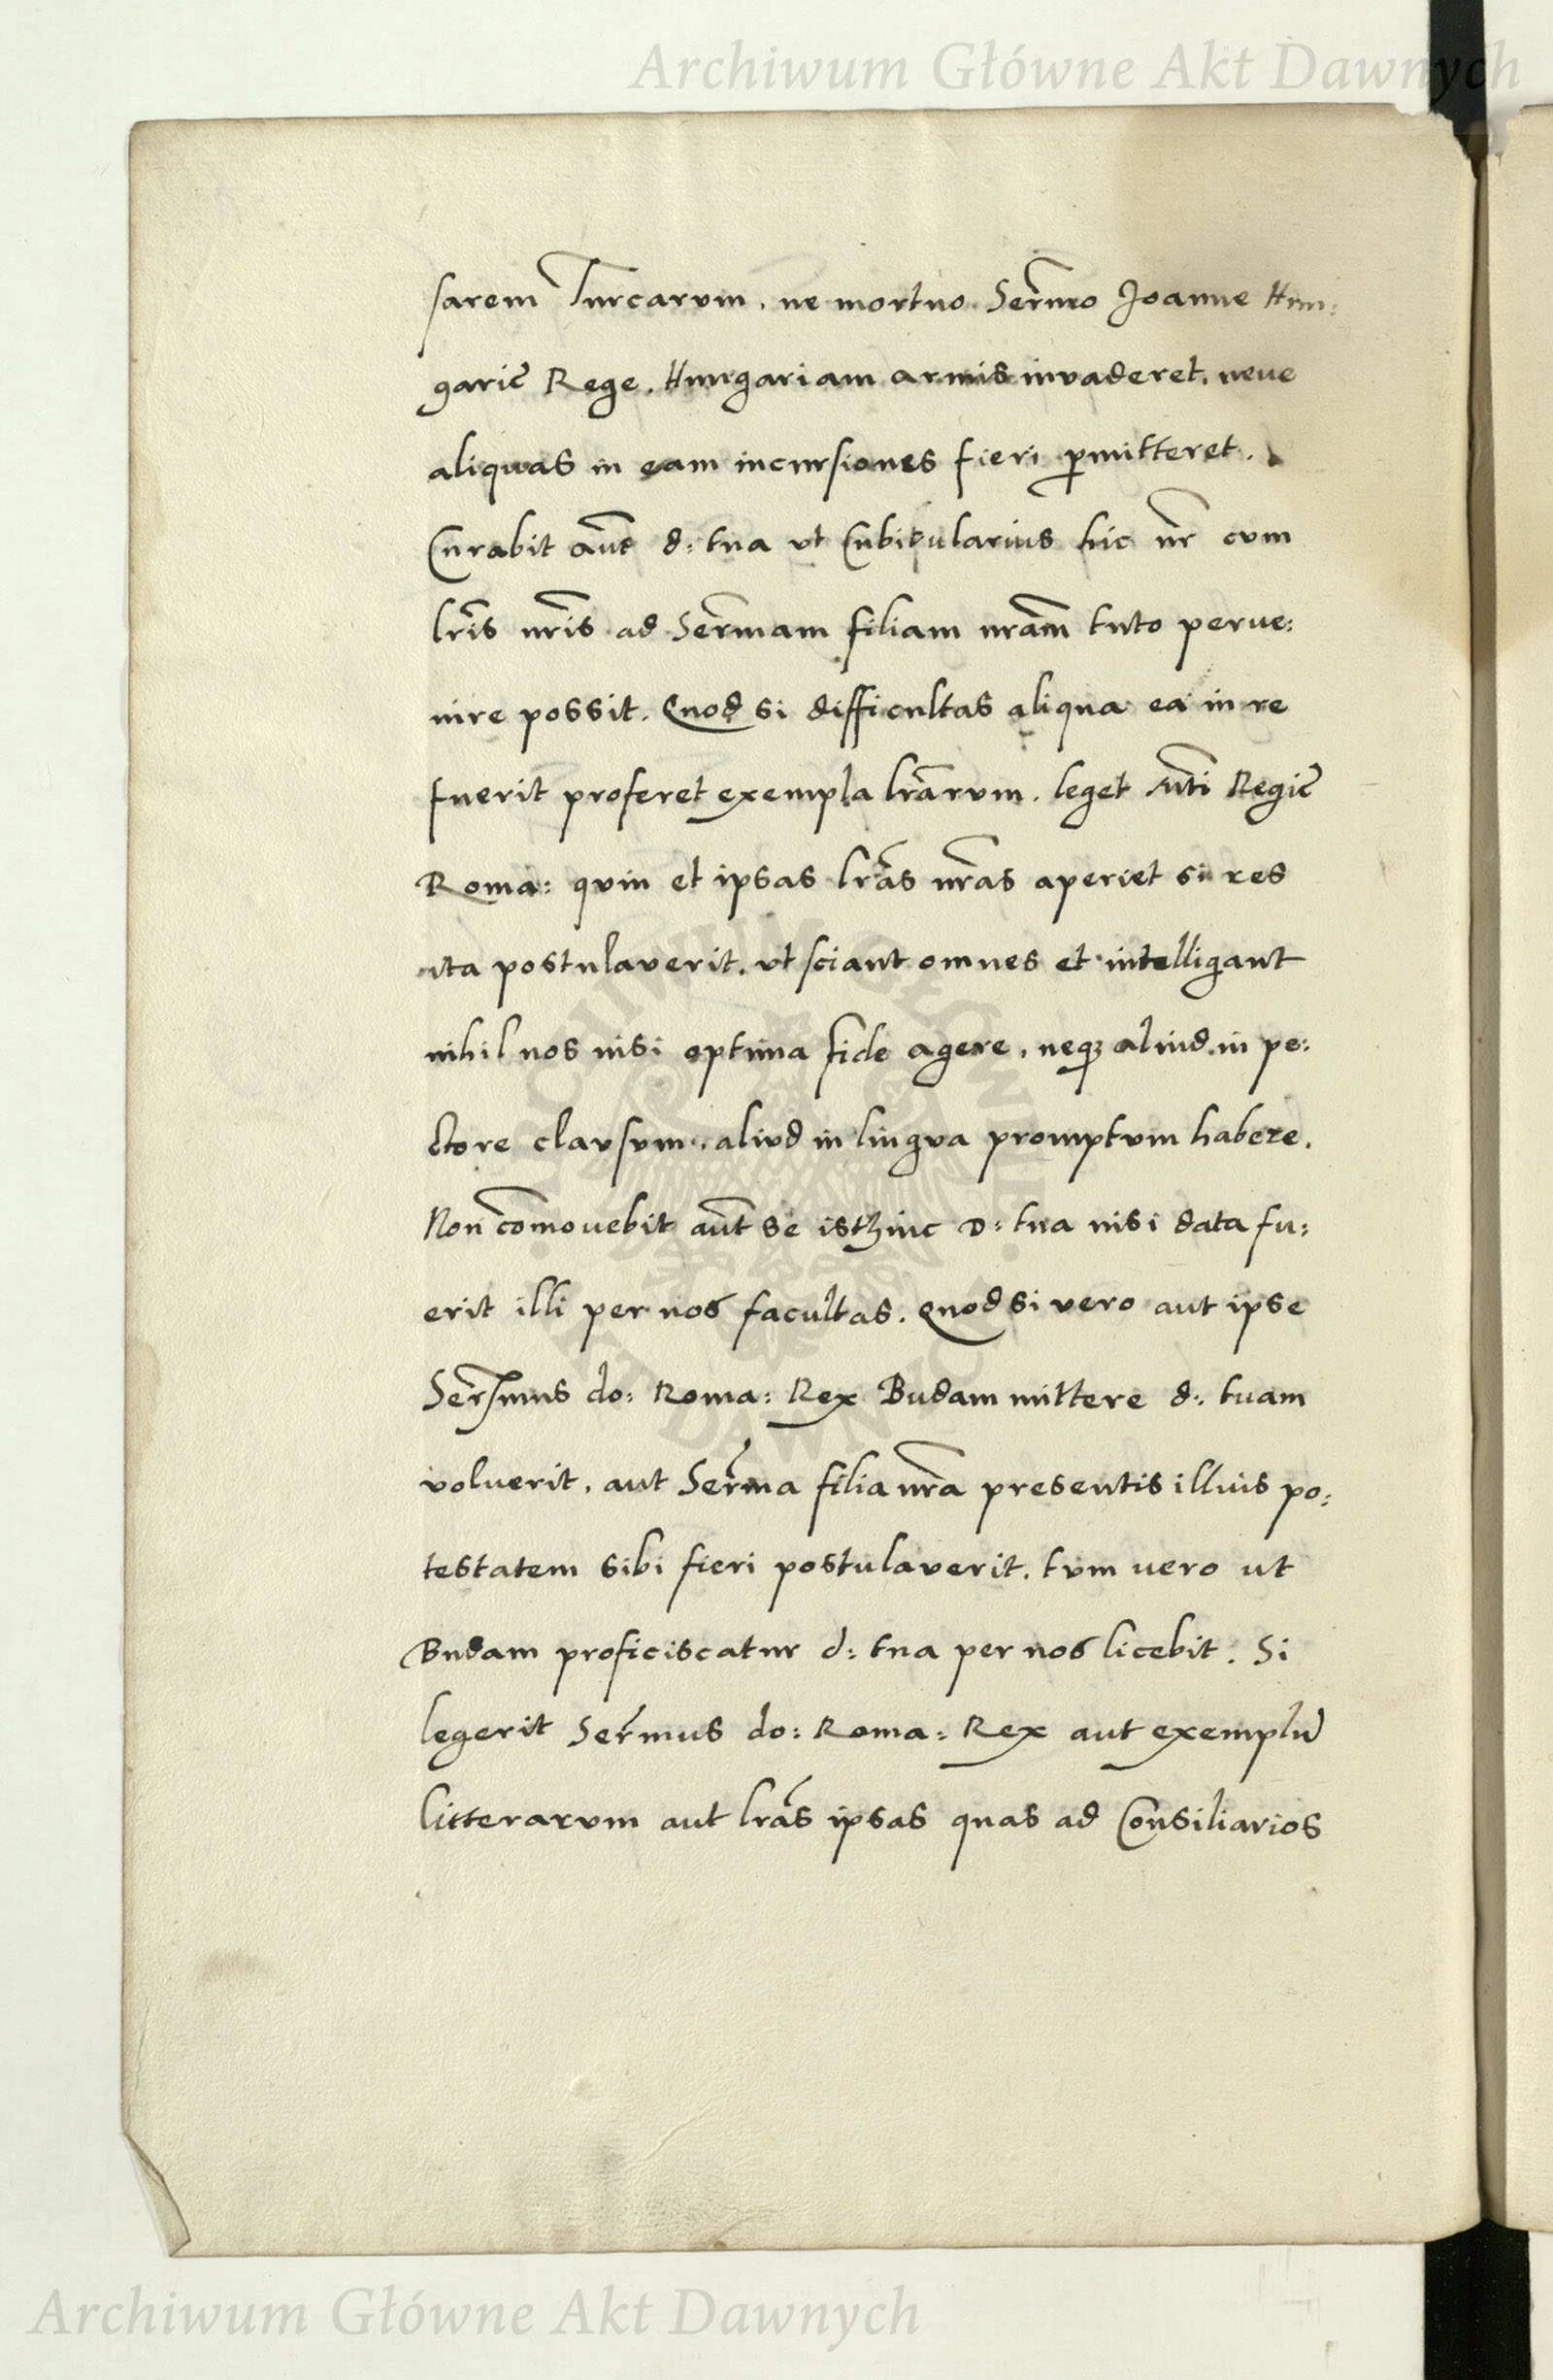 Archiwum Główne Akt Dawnych
sarem Turcarum, ne mortuo Sermo Joanne Hun:
garię Rege, Hungariam armis invaderet, neue
aliquas in eam incursiones fieri pmitteret.
Curabit aut d: tua ut Cubicularius hic nr cum
lris nris ad Sermam filiam nram tuto perue:
nire possit. Quod si difficultas aliqua ea in re
fuerit proferet exempla lrarum, leget Mti Regię
Roma: quin et ipsas lras nras aperiet si res
ita postulaverit, ut sciant omnes et intelligant
nihil nos nisi optima fide agere, neq; aliud in pe:
ctore clausum, aliud in lingua promptum habere.
Non comouebit aut se isthinc D: tua nisi data fu:
erit illi per nos facultas. Quod si vero aut ipse
Sersmus do: Roma: Rex Budam mittere d: tuam
voluerit, aut Serma filia nra presentis illius po:
testatem sibi fieri postulaverit, tum vero ut
Budam proficiscatur d: tua per nos licebit. Si
legerit Sermus do: Roma: Rex aut exemplu
litterarum aut lras ipsas quas ad Consiliarios
ARCHIWUM GŁÓWNE AKT DAWNYCH
Archiwum Główne Akt Dawnych